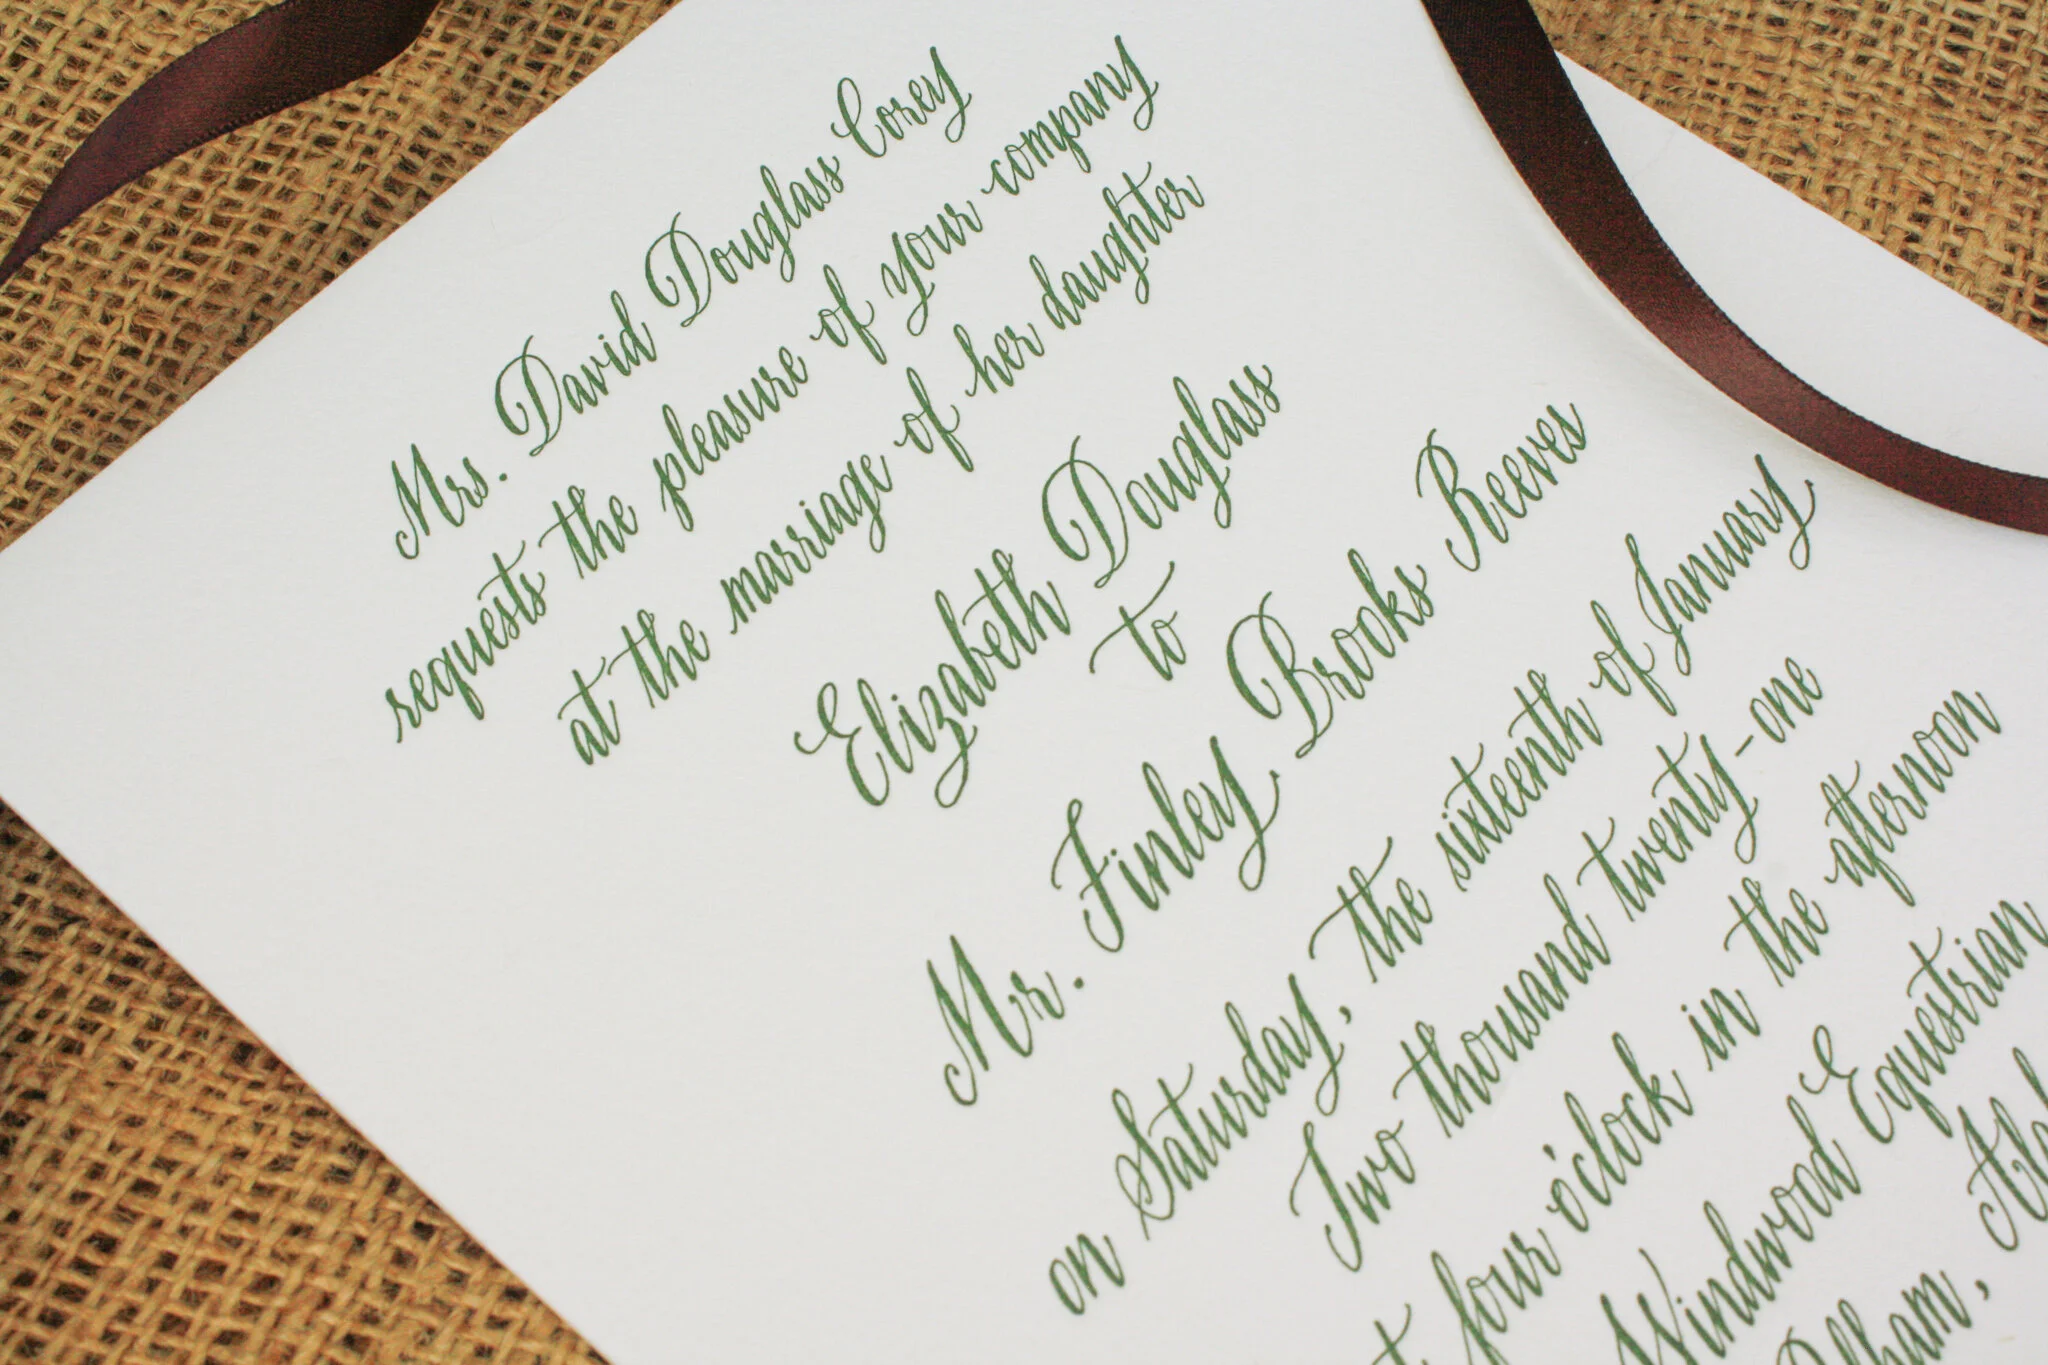 Mrs. David Douglass Corey
requests the pleasure of your company
at the marriage of her daughter
Elizabeth Douglass
to
Mr. Finley Brooks Reeves
on Saturday, the sixteenth of January
Two thousand twenty-one
four o'clock in the afternoon
Windwood Equestrian